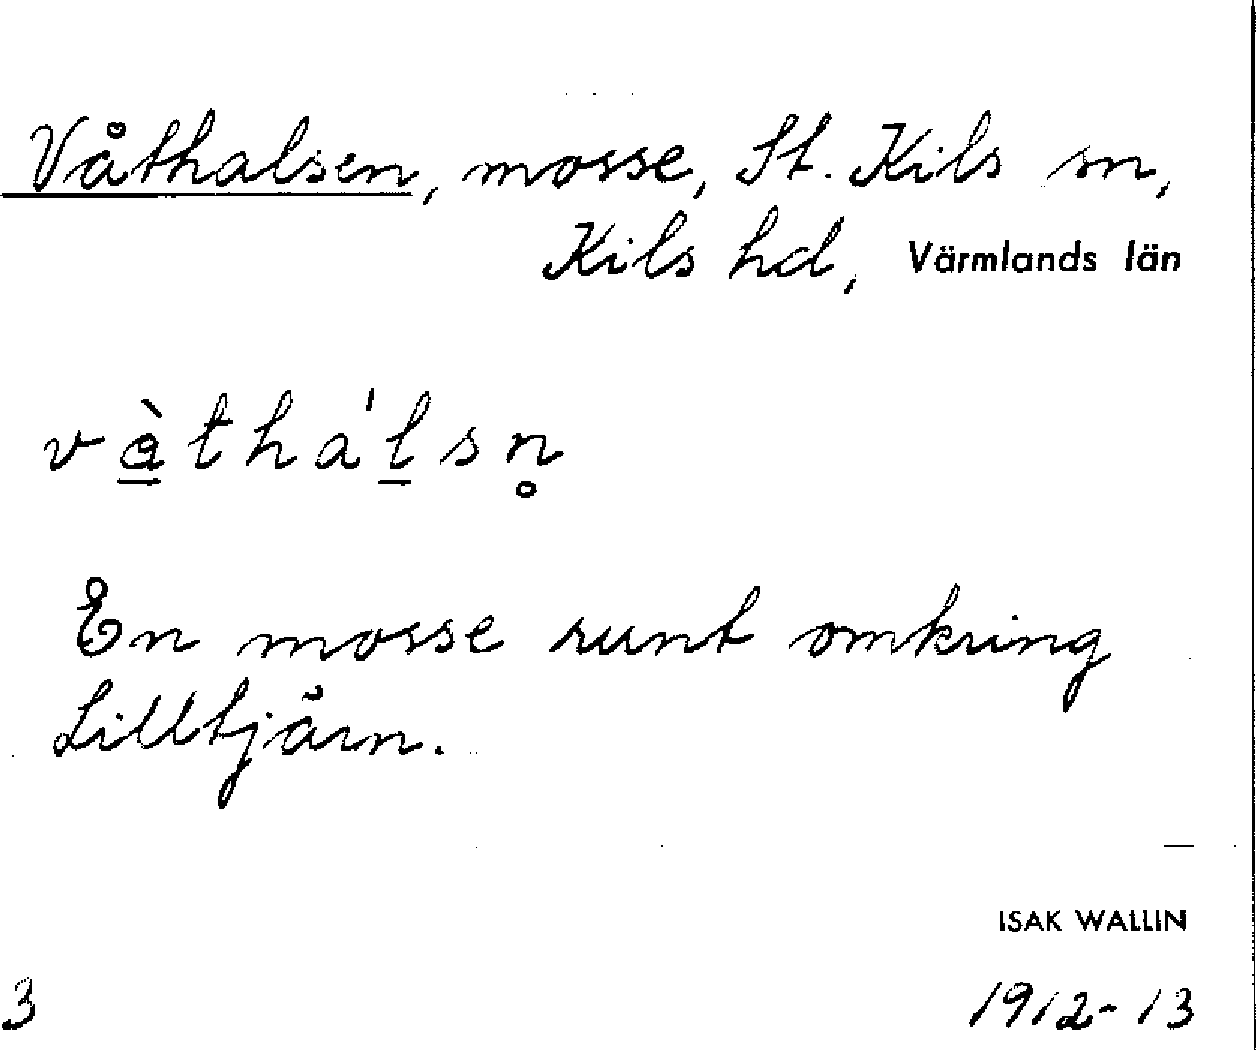 Våthalsen, mosse, St. Kils sn,
Kils hd, Värmlands län
vàtha'lsn̥
En mosse runt omkring
Lilltjärn.
ISAK WALLIN
3
1912-13